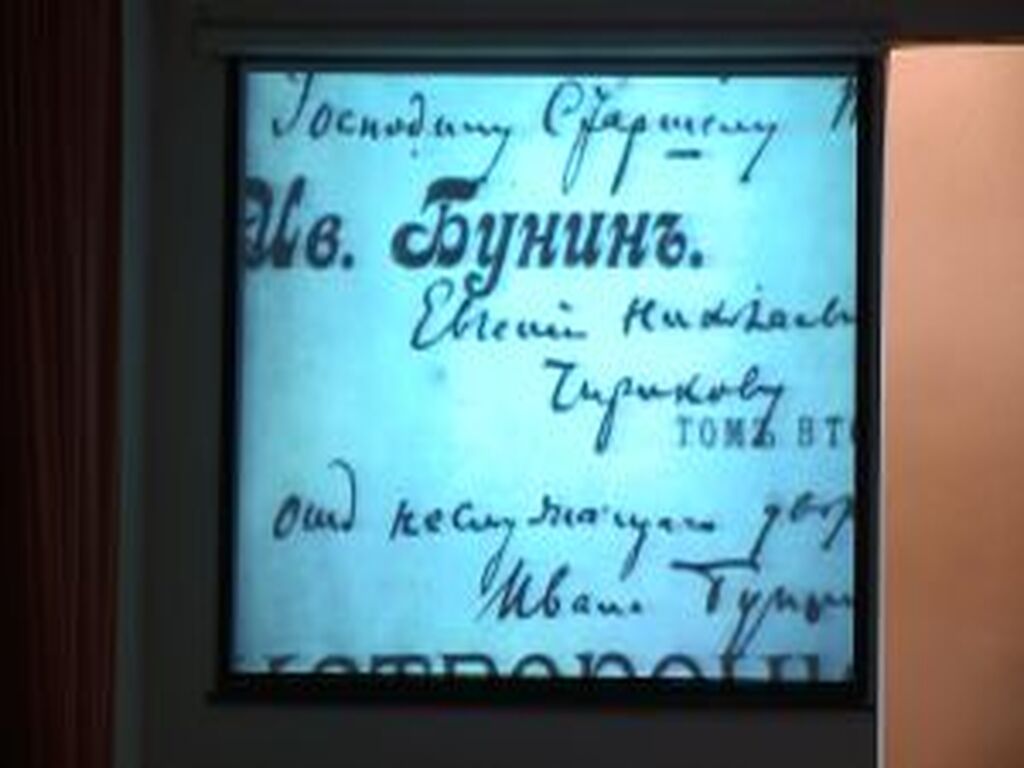 Господину Старшему
Ив. Бунинъ.
Евгенiю Николаеви
Чирикову
ТОМЪ ВТО
отъ неслужащего двор
Ивана Бунин